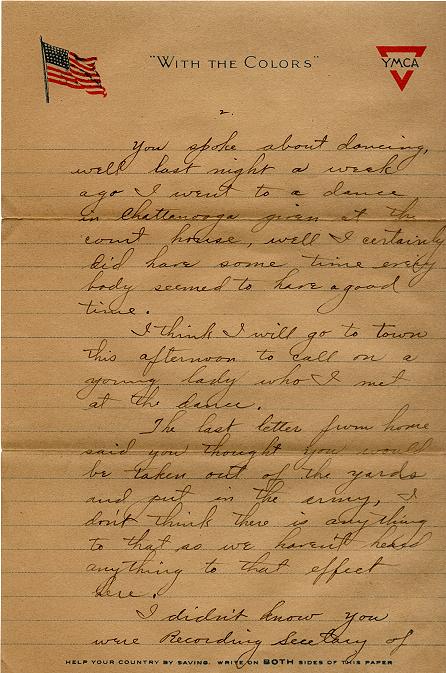 "WITH THE COLORS"
YMCA
2.
You spoke about dancing,
well last night a week
ago I went to a dance
in Chattanooga given at the
court house, well I certainly
did have some time every
body seemed to have a good
time.
I think I will go to town
this afternoon to call on a
young lady who I met
at the dance.
The last letter from home
said you thought you would
be taken out of the yards
and put in the army, I
don't think there is anything
to that as we haven't heard
anything to that effect
here.
I didn't know you
were Recording Secetary of
HELP YOUR COUNTRY BY SAVING. WRITE ON BOTH SIDES OF THIS PAPER